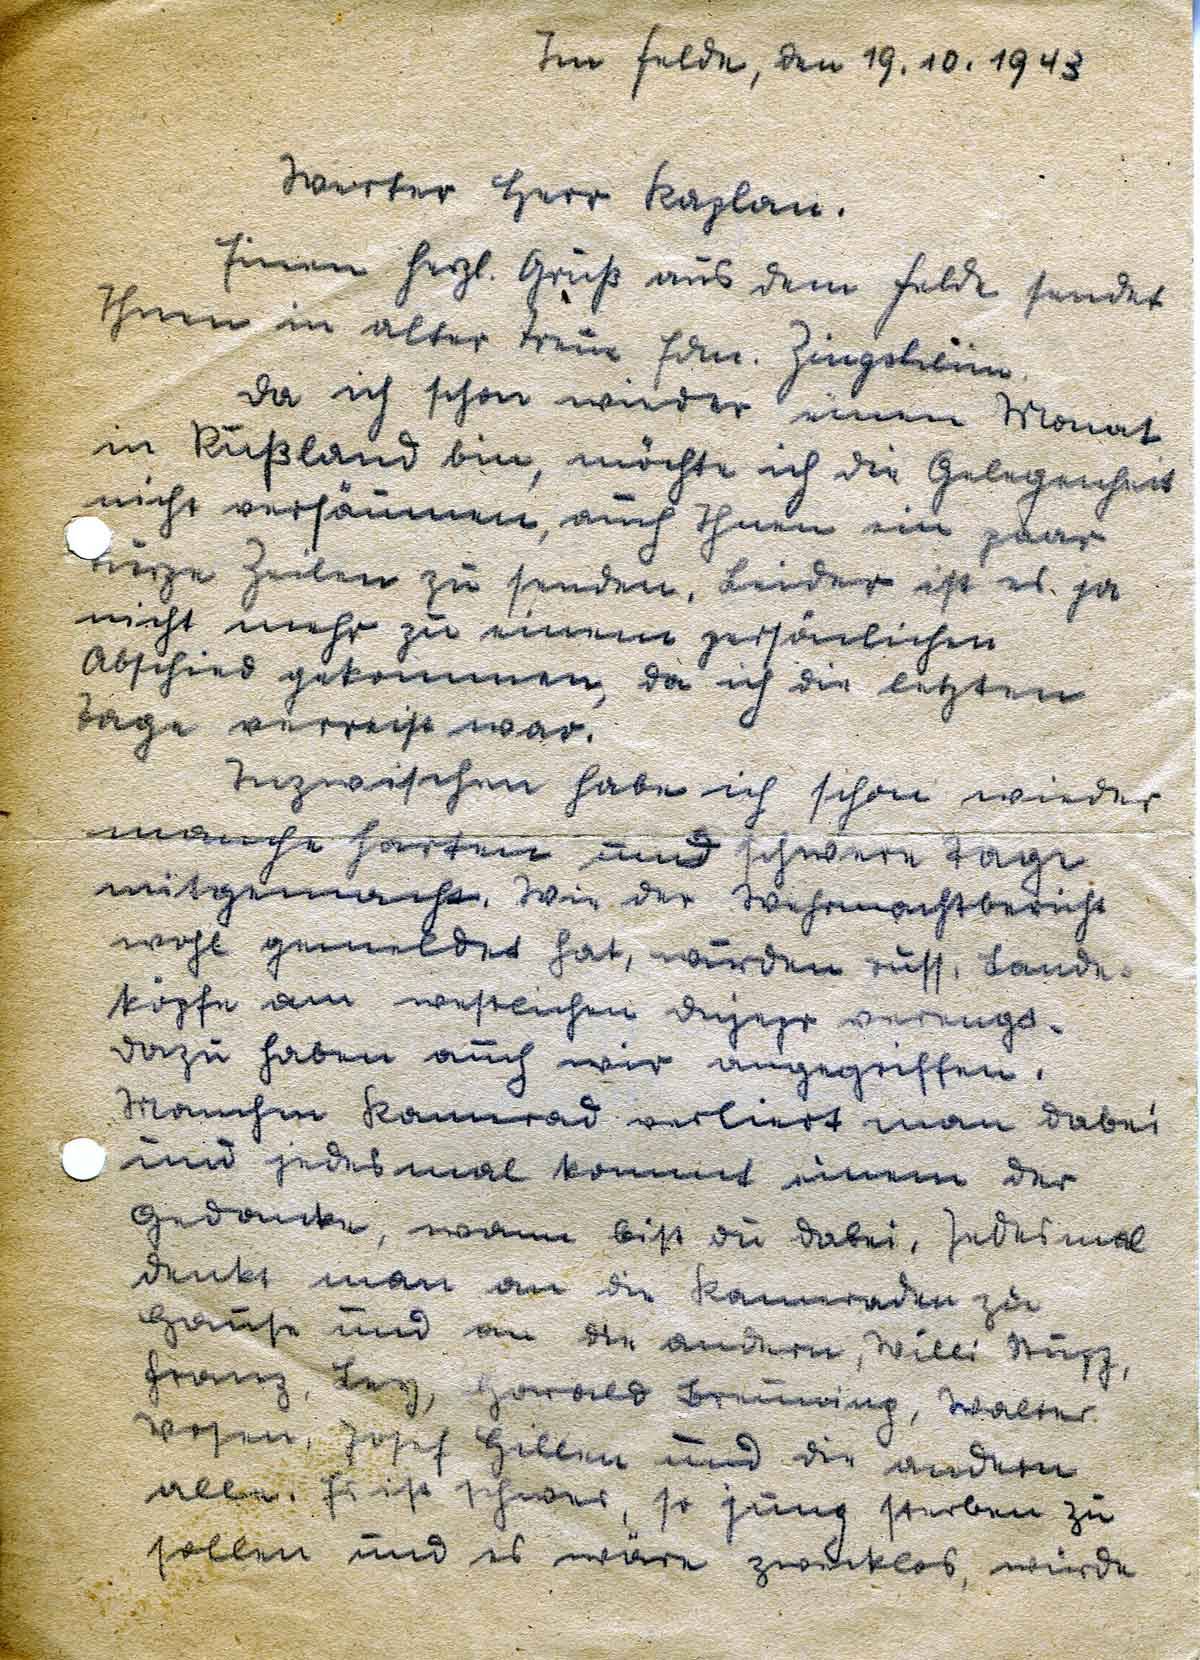 Im Felde, den 19.10.1943
Werter Herr Kaplan.
Einen herzl. Gruß aus dem Felde sendet
Ihnen in alter Treue Zingsheim.
Da ich schon wieder einen Monat
in Rußland bin, möchte ich die Gelegenheit
nicht versäumen, auch Ihnen ein paar
kurze Zeilen zu senden. Leider ist es ja
nicht mehr zu einem persönlichen
Abschied gekommen, da ich die letzten
Tage verreist war.
Inzwischen habe ich schon wieder
manche harten und schwere Tage
mitgemacht. Wie der Wehrmachtbericht
wohl gemeldet hat, wurden russ. Lande-
köpfe am westlichen Dnjepr verengt.
Dazu haben auch wir angegriffen.
Manchen Kamerad verliert man dabei
und jedesmal kommt einem der
Gedanke, wann bist du dabei. Jedesmal
denkt man an die Kameraden zu
Hause und an die andern, Willi
Franz, Ley, Harald Breuning, Walter
Vosen, Josef Gillen und die andern
alle. Es ist schwer, so jung sterben zu
sollen und es wäre zwecklos, würde